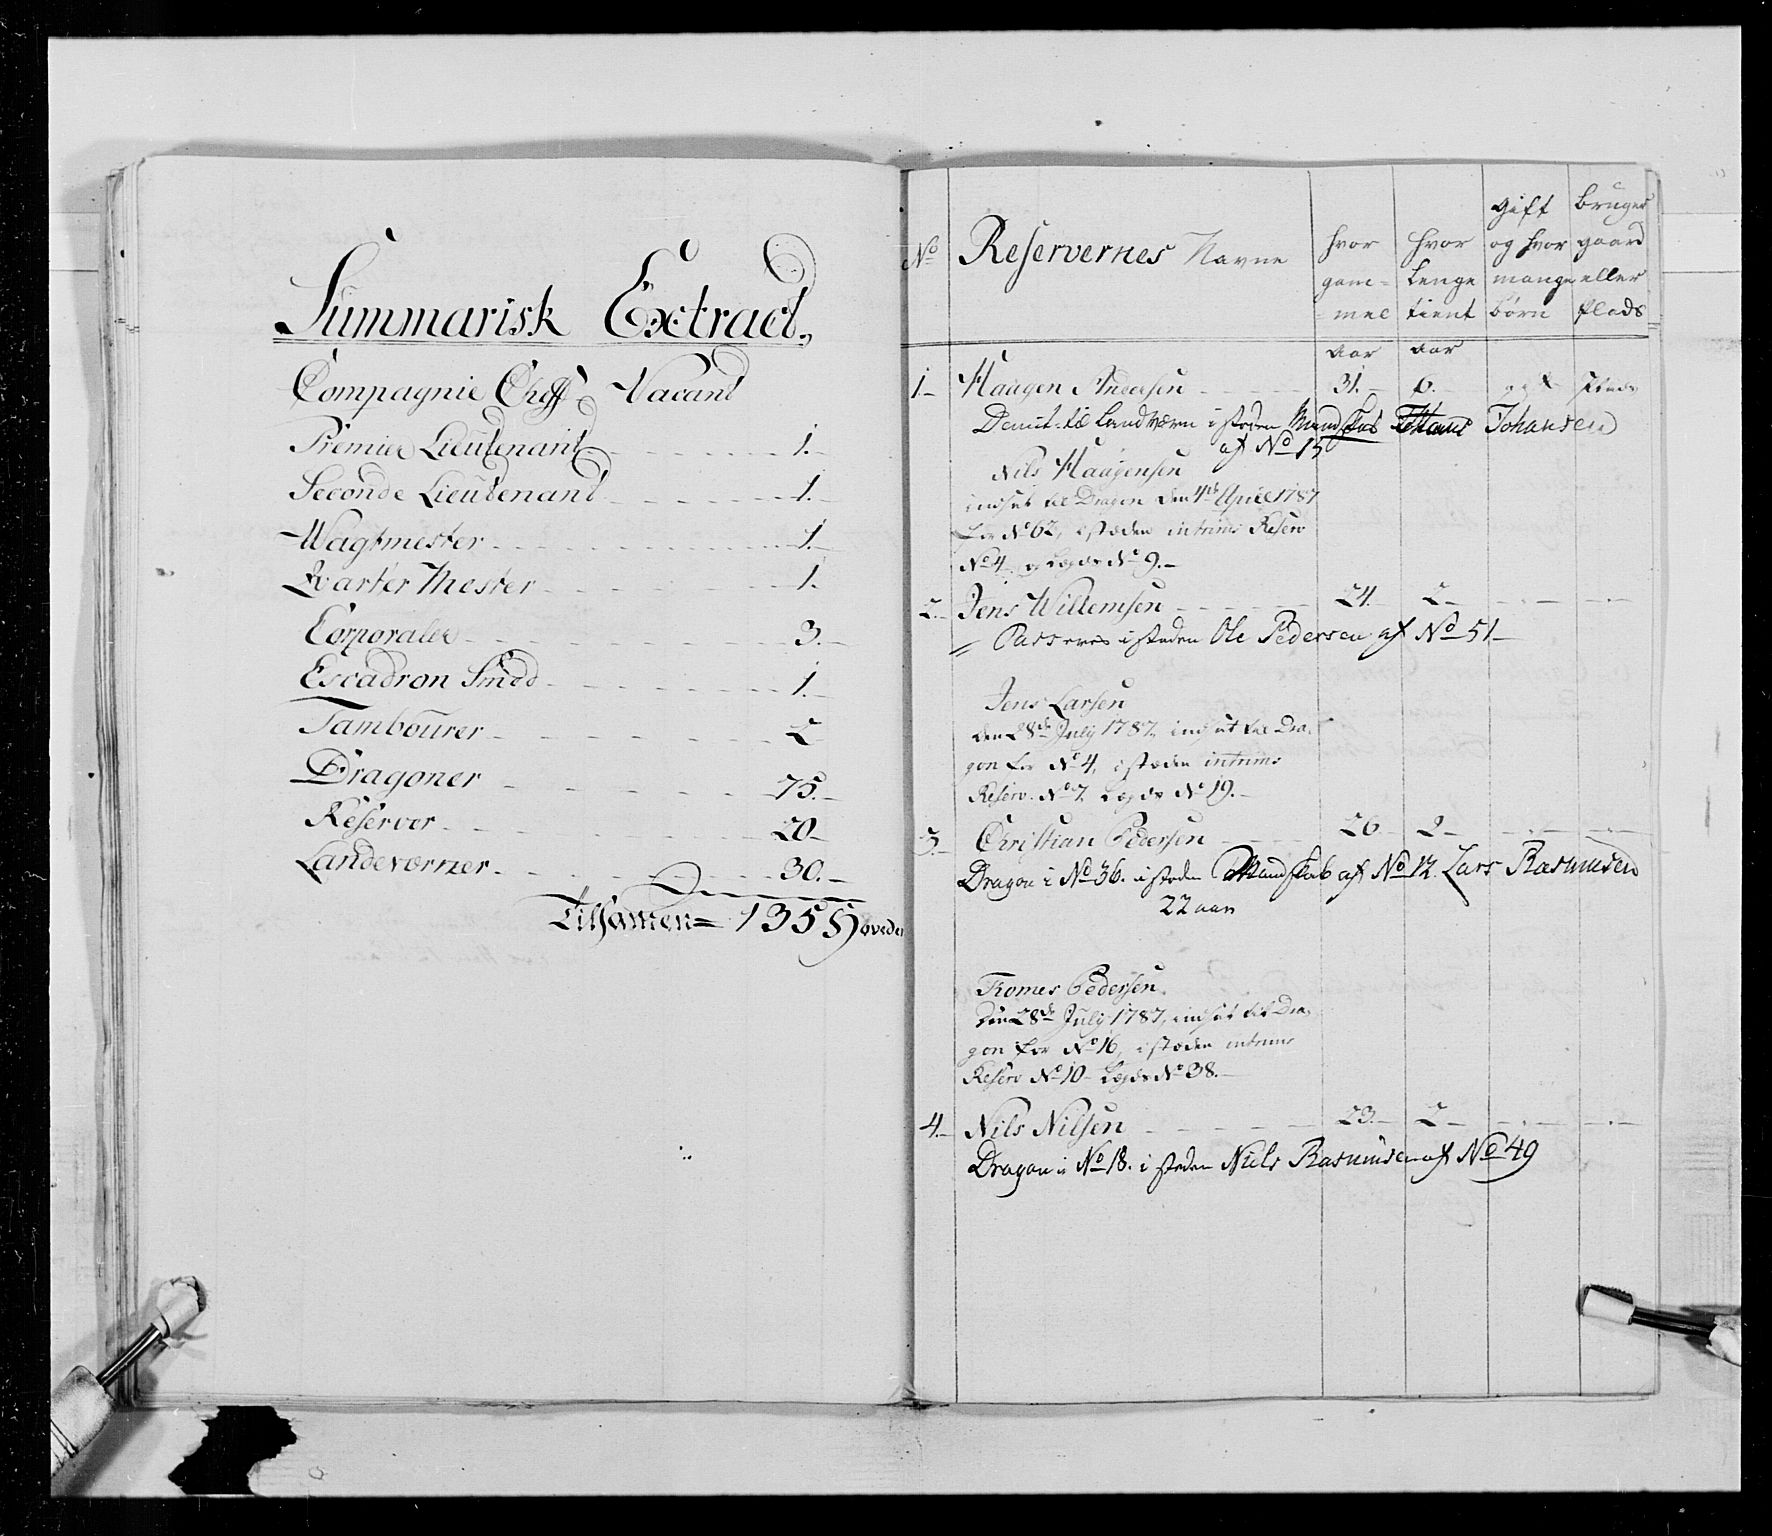 Summarisk Extract.
Compagnie Cheff Vacant
Premier Lieutenant 1.
Seconde Lieutenant 1.
Wagtmester 1.
Qvarter Mester 1.
Corporaler 3.
Escadron Smed 1.
Tambourer 2
Dragoner 75.
Reserver 20
Landeværner 30.
Tilsamen = 135 Hoveder
No Reservernes Navne
hvor gam= mel
hvor lenge tient
Gift og hvor mange børn
bruger gaard eller Plads
aar aar
1 Haagen Andersen 31. 6. Plads
Demit: til Landværn i steden Mandskab Johansen
af No 15
Nils Haagensen
indsat til Dragon den 4de April 1787
for No 62, i stæden intrims Reserv
No 4 og Legds No 9.
2. Jens Willemsen 24. 2
Passeres i steden Ole Pedersen af No 51
Jens Larsen
den 28de July 1787, indsat til Dra=
gon for No 4, i stæden intrims
Reserv No 7 Legds No 19.
3. Christian Pedersen 26 2
Dragon i No 36. i steden Mandskab af No 12. Lars Rasmusen
22 aar
Tromes Pedersen
Den 28de July 1787, indsat til Dra=
gon for No 16, i stæden intrims
Reserv No 10 Legds No 38.
4. Nils Nilsen 23. 2
Dragon i No 18. i steden Niels Rasmusen af No 49